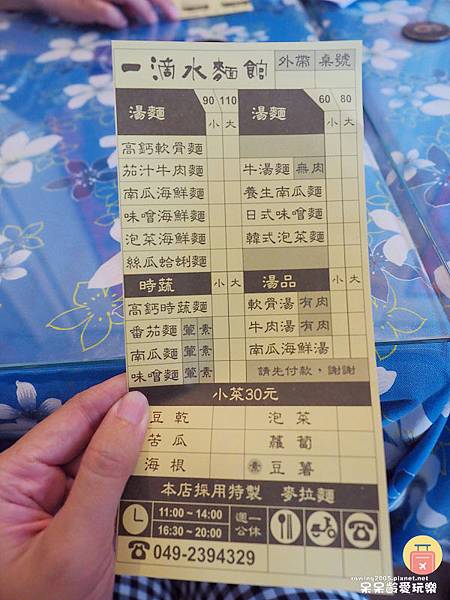 一滴水麵館 外帶 桌號
湯麵 90 110 小 大
高鈣軟骨麵
茄汁牛肉麵
南瓜海鮮麵
味噌海鮮麵
泡菜海鮮麵
絲瓜蛤蜊麵
湯麵 60 80 小 大
牛湯麵 無肉
養生南瓜麵
日式味噌麵
韓式泡菜麵
時蔬 小 大
高鈣時蔬麵
番茄麵 葷 素
南瓜麵 葷 素
味噌麵 葷 素
湯品 小 大
軟骨湯 有肉
牛肉湯 有肉
南瓜海鮮湯
請先付款，謝謝
小菜30元
豆乾 泡菜
苦瓜 蘿蔔
海根 素 豆薯
本店採用特製 麥拉麵
11:00 ~ 14:00
16:30 ~ 20:00
週一公休
049-2394329
rowing2005.pixnet.net
呆呆齡愛玩樂